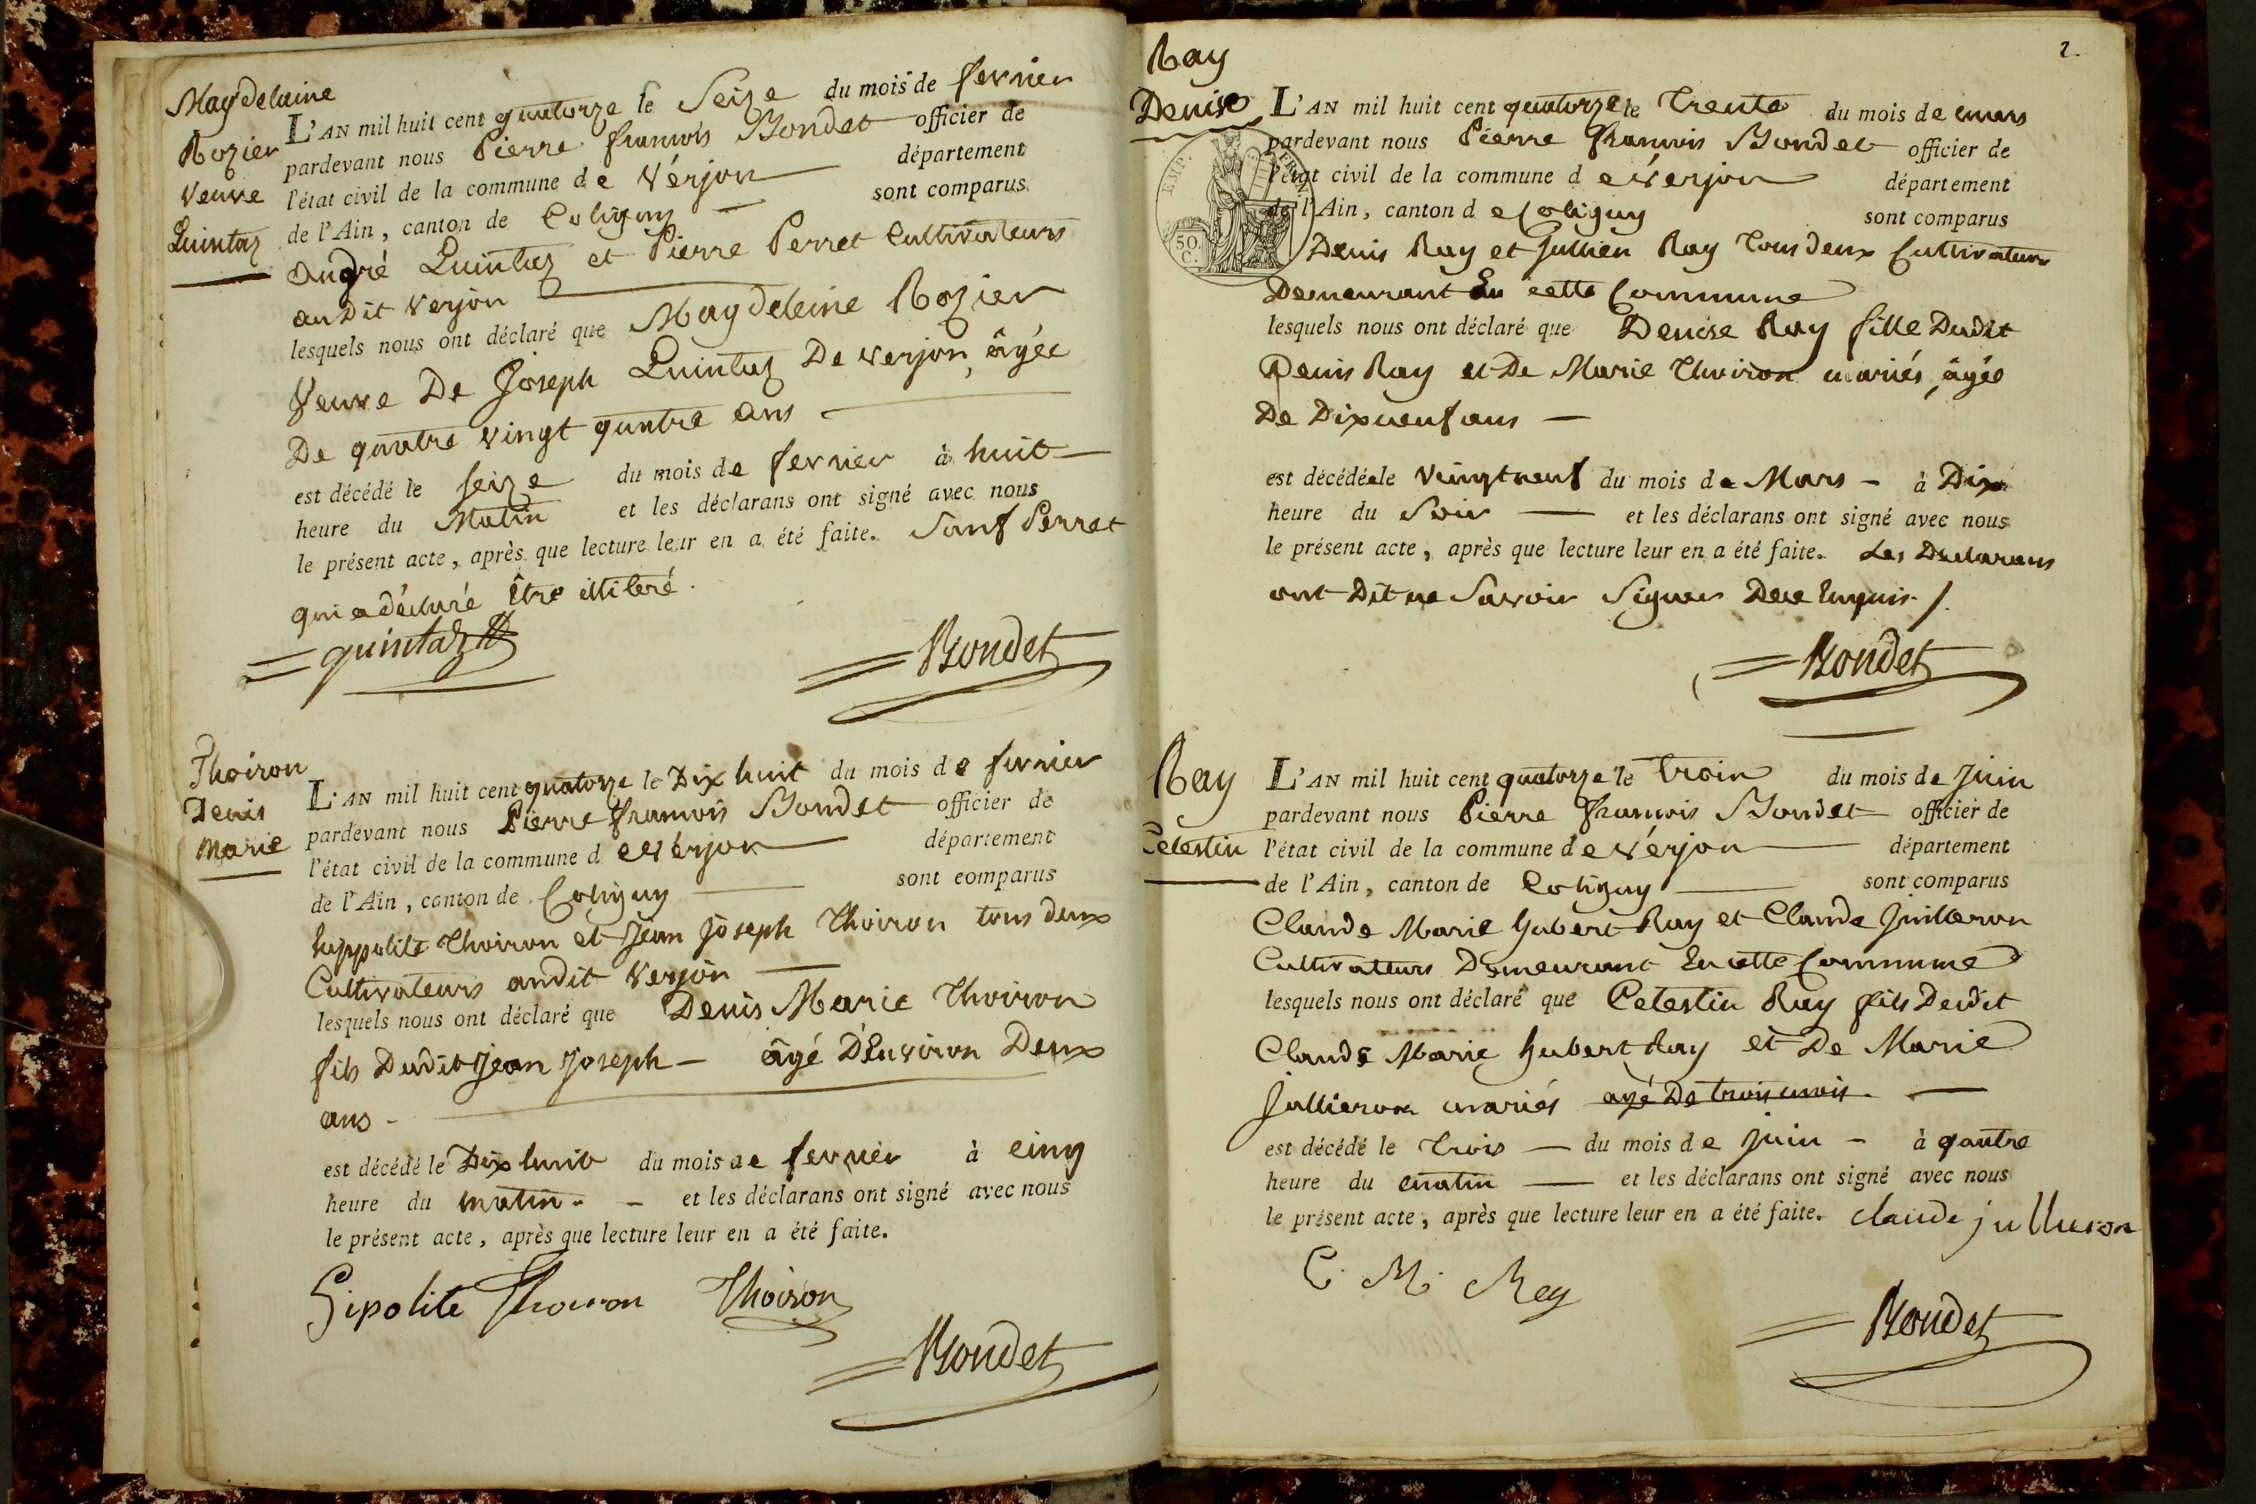 Magdelaine
Rozier
Veuve
Quintaz
L'AN mil huit cent quatorze le Seize du mois de fevrier
pardevant nous Pierre françois Bondet officier de
l'état civil de la commune de Vérjon département
de l'Ain, canton de Coligny sont comparus
andré Quintaz et Pierre Perret Cultivateurs
audit Verjon
lesquels nous ont déclaré que Magdeleine Rozier
Veuve De Joseph Quintaz De verjon, âgée
De quatre vingt quatre ans
est décédé le seize du mois de fevrier à huit
heure du Matin et les déclarans ont signé avec nous
le présent acte, après que lecture leur en a été faite. Sauf Perret
qui a déclaré Être illiteré.
quintaz
Bondet
Thoiron
Denis
Marie
L'AN mil huit cent quatorze le Dix huit du mois de fevrier
pardevant nous Pierre françois Bondet officier de
l'état civil de la commune de Vérjon département
de l'Ain, canton de Coligny sont comparus
hyppolite Thoiron et Jean Joseph Thoiron tous deux
Cultivateurs audit Verjon
lesquels nous ont déclaré que Denis Marie Thoiron
fils Dudit Jean Joseph - âgé D'Environ Deux
ans -
est décédé le Dix huit du mois de fevrier à cinq
heure du matin. - et les déclarans ont signé avec nous
le présent acte, après que lecture leur en a été faite.
Hipolite Thoiron Thoiron
Bondet
2.
Ray
Denise
EMP. FRAN.
50
C.
L'AN mil huit cent quatorze le Trente du mois de mars
pardevant nous Pierre françois Bondet officier de
l'état civil de la commune de Vérjon département
de l'Ain, canton de Coligny sont comparus
Denis Ray et Jullien Ray Tous deux Cultivateurs
Demeurant En cette Commune
lesquels nous ont déclaré que Denise Ray fille Dudit
Denis Ray et De Marie Thoiron mariés, âgée
De Dixneuf ans —
est décédée le Vingt neuf du mois de Mars - à Dix
heure du Soir — et les déclarans ont signé avec nous
le présent acte, après que lecture leur en a été faite. Les Declarans
ont Dit ne Savoir Signer De ce Enquis /.
Bondet
Ray
Celestin
L'AN mil huit cent quatorze le Trois du mois de Juin
pardevant nous Pierre françois Bondet officier de
l'état civil de la commune de Vérjon département
de l'Ain, canton de Coligny sont comparus
Claude Marie hubert Ray et Claude Juilleron
Cultivateurs Demeurant En cette Commune
lesquels nous ont déclaré que Celestin Ray fils Dudit
Claude Marie hubert Ray et De Marie
Jullieron mariés agé De trois mois. —
est décédé le Trois — du mois de Juin - à quatre
heure du matin — et les déclarans ont signé avec nous
le présent acte, après que lecture leur en a été faite. claude jullieron
C. M. Rey
Bondet